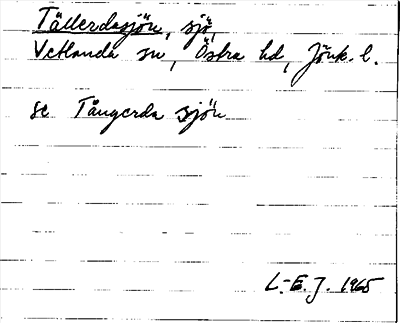 Tällerdasjön, sjö,
Vetlanda sn, Östra hd, Jönk. l.
se Tångerda sjön
L-E. J. 1965